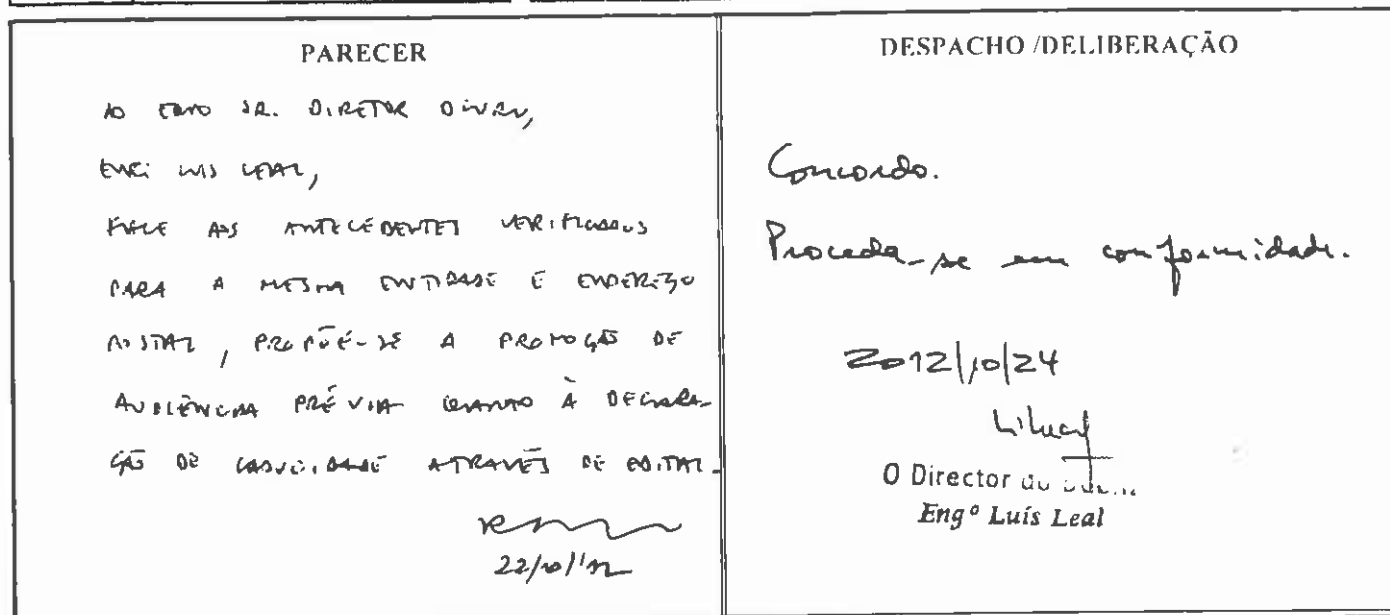 PARECER
AO EXMO SR. DIRETOR DIVRU,
ENG: LUIS LEAL,
FACE AOS ANTECEDENTES VERIFICADOS
PARA A MESMA ENTIDADE E ENDEREÇO
POSTAL, PROPÕE-SE A PROMOÇÃO DE
AUDIÊNCIA PRÉVIA QUANTO À DECLARA-
ÇÃO DE CADUCIDADE ATRAVÉS DE EDITAL.
22/10/'12
DESPACHO /DELIBERAÇÃO
Concordo.
Proceda-se em conformidade.
2012/10/24
O Director
Engº Luís Leal